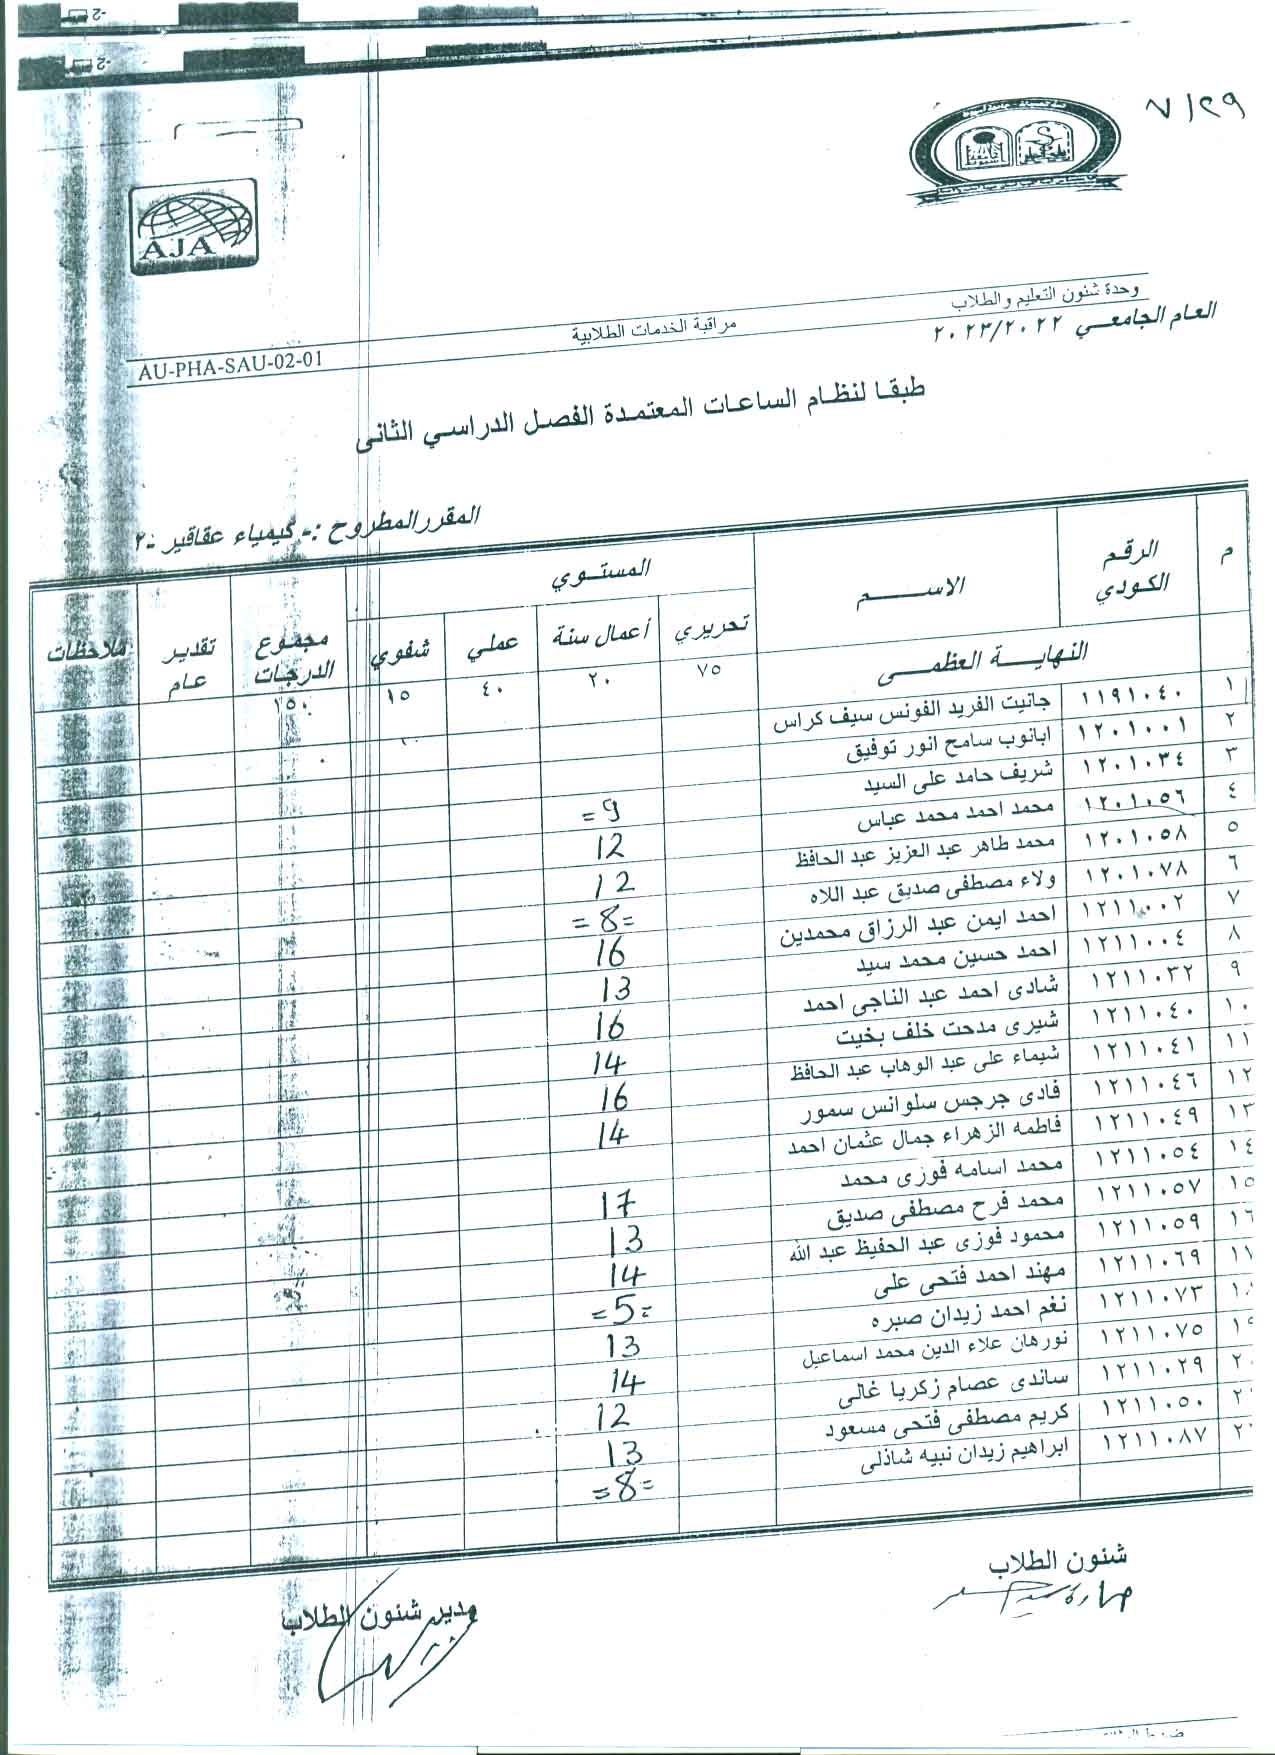 ٧/٢٩
AJA
وحدة شئون التعليم والطلاب
مراقبة الخدمات الطلابية
AU-PHA-SAU-02-01
العام الجامعي ٢٠٢٣/٢٠٢٢
طبقا لنظام الساعات المعتمدة الفصل الدراسي الثانى
المقرر المطروح :- كيمياء عقاقير -٢
م الرقم الكودي الاسم المستوي مجموع الدرجات تقدير عام ملاحظات
تحريري أعمال سنة عملي شفوي
النهاية العظمى ٧٥ ٢٠ ٤٠ ١٥ ١٥٠
١ ١١٩١٠٤٠ جانيت الفريد الفونس سيف كراس
٢ ١٢٠١٠٠١ ابانوب سامح انور توفيق
٣ ١٢٠١٠٣٤ شريف حامد على السيد = 9
٤ ١٢٠١٠٥٦ محمد احمد محمد عباس 12
٥ ١٢٠١٠٥٨ محمد طاهر عبد العزيز عبد الحافظ 12
٦ ١٢٠١٠٧٨ ولاء مصطفى صديق عبد اللاه = 8 =
٧ ١٢١١٠٠٢ احمد ايمن عبد الرزاق محمدين 16
٨ ١٢١١٠٠٤ احمد حسين محمد سيد 13
٩ ١٢١١٠٣٢ شادى احمد عبد الناجى احمد 16
١٠ ١٢١١٠٤٠ شيرى مدحت خلف بخيت 14
١١ ١٢١١٠٤١ شيماء على عبد الوهاب عبد الحافظ 16
١٢ ١٢١١٠٤٦ فادى جرجس سلوانس سمور 14
١٣ ١٢١١٠٤٩ فاطمه الزهراء جمال عثمان احمد
١٤ ١٢١١٠٥٤ محمد اسامه فوزى محمد 17
١٥ ١٢١١٠٥٧ محمد فرح مصطفى صديق 13
١٦ ١٢١١٠٥٩ محمود فوزى عبد الحفيظ عبد الله 14
١٧ ١٢١١٠٦٩ مهند احمد فتحى على = 5 =
١٨ ١٢١١٠٧٣ نغم احمد زيدان صبره 13
١٩ ١٢١١٠٧٥ نورهان علاء الدين محمد اسماعيل 14
٢٠ ١٢١١٠٢٩ ساندى عصام زكريا غالى 12
٢ ١٢١١٠٥٠ كريم مصطفى فتحى مسعود 13
٢ ١٢١١٠٨٧ ابراهيم زيدان نبيه شاذلى = 8 =
شئون الطلاب
مدير شئون الطلاب